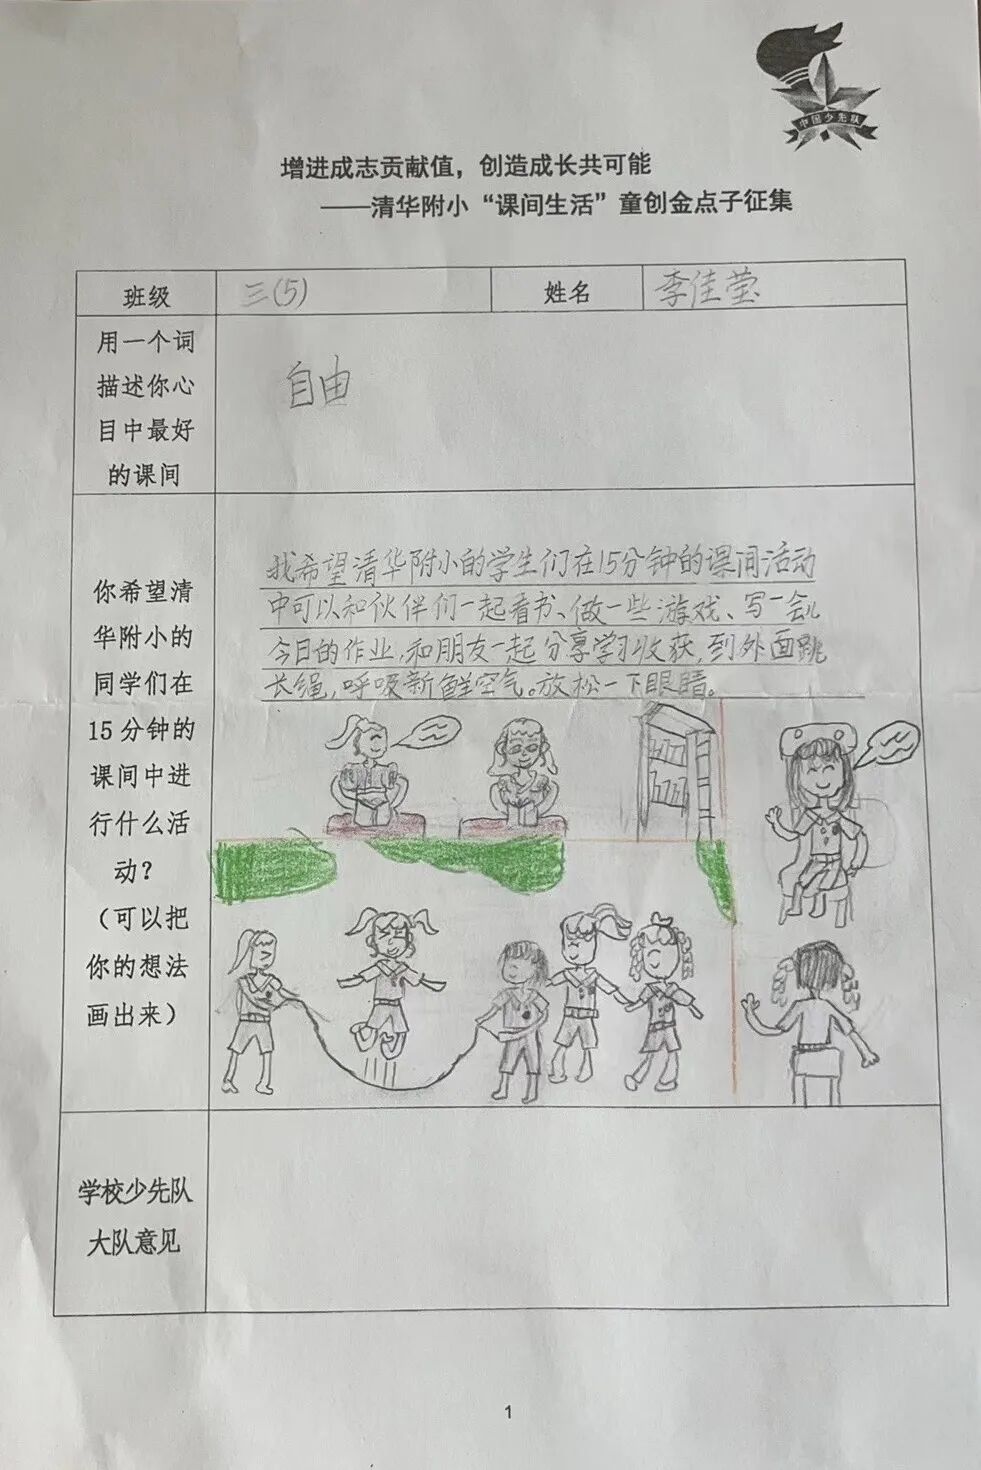 中国少先队
增进成志贡献值，创造成长共可能
——清华附小“课间生活”童创金点子征集
班级
三(5)
姓名
李佳莹
用一个词
描述你心
目中最好
的课间
自由
你希望清
华附小的
同学们在
15分钟的
课间中进
行什么活
动？
（可以把
你的想法
画出来）
我希望清华附小的学生们在15分钟的课间活动
中可以和伙伴们一起看书、做一些游戏、写一会儿
今日的作业,和朋友一起分享学习收获,到外面跳
长绳,呼吸新鲜空气。放松一下眼睛。
学校少先队
大队意见
1